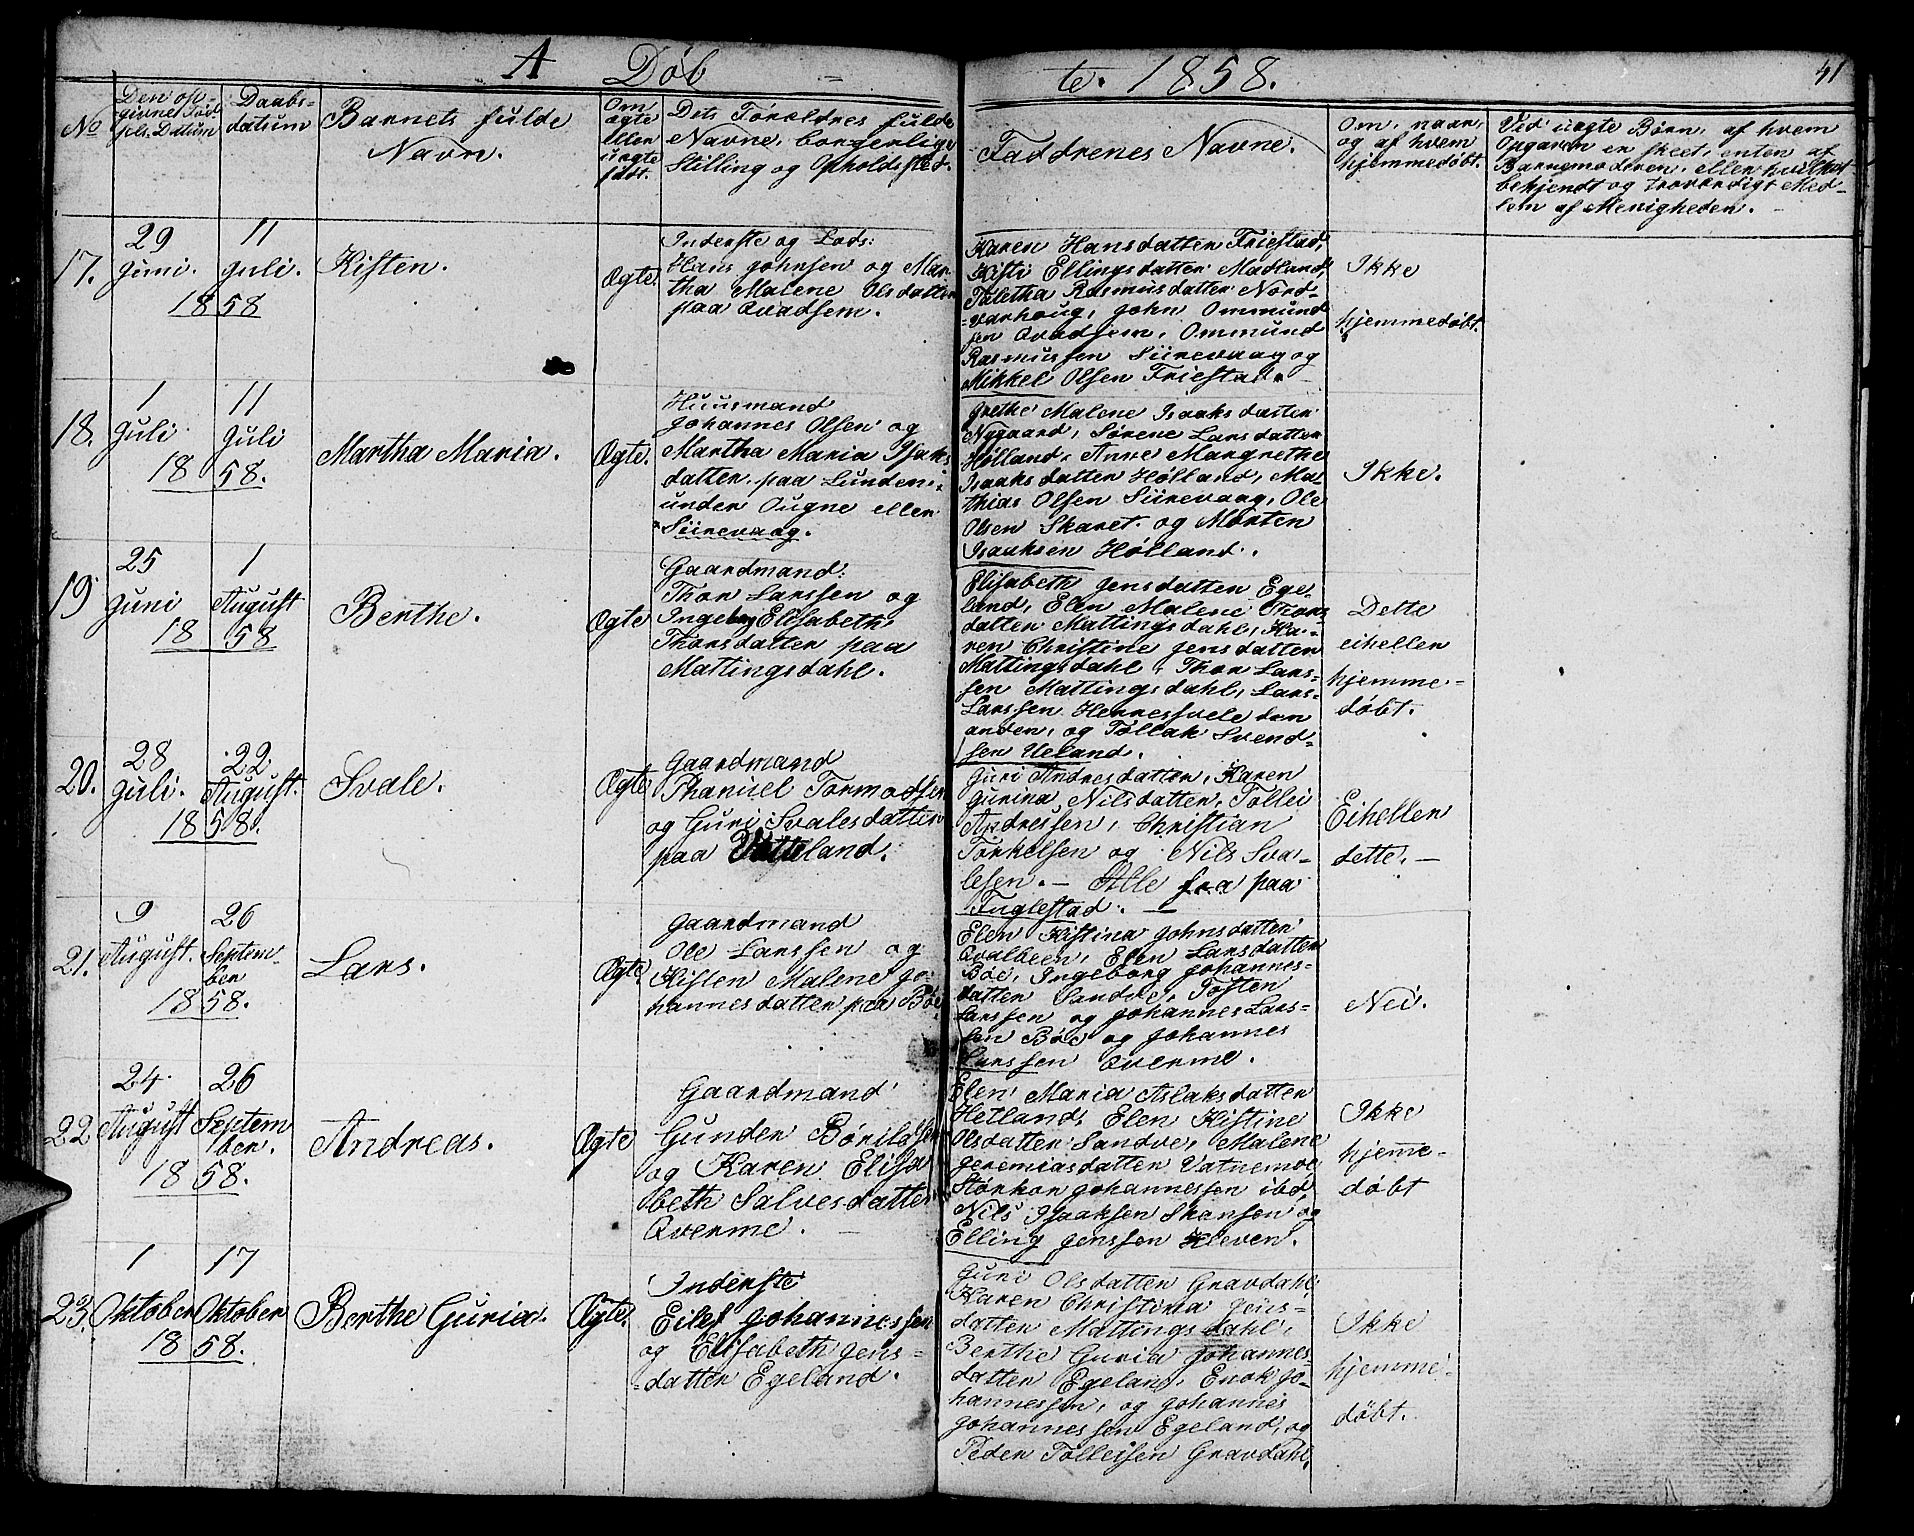 A Döb = te. 1858. 41
No
Den op-
givne Föd-
sels. Datum
Daabs-
datum
Barnets fulde
Navn.
Om
ægte
eller
uægte
född.
Dets Föreldres fulde
Navne, borgerlige
Stilling og Opholdssted.
Faddrenes Navne.
Om, naar,
og af hvem
hjemmedöbt.
Ved uægte Börn, af hvem
Opgaven er skeet, enten af
Barnemoderen, eller hvilket
bekjendt og troværdigt Med-
lem af Menigheden.
17.
29
Juni.
11
Juli.
1858
Kisten.
Ægte.
Inderste og Lods:
Hans Johnsen og Mar-
tha Malene Olsdatter
paa Qvadsem.
Karen Hansdatter Friestad,
Kisti Ellingsdatter Madland,
Taletha Rasmusdatter Nord-
varhoug, John Ommund
sen Qvadsem, Ommund
Rasmussen Siirevaag og
Mikkel Olsen Friestad.
Ikke
hjemmedöbt.
18.
1
Juli
11
Juli
1858.
Martha Maria.
Ægte.
Huusmand
Johannes Olsen og
Martha Maria Isaks
datter paa Lunden
under Ougne eller
Siirevaag.
Grethe Malene Isaaks datter
Nygaard, Sörene Larsdatter
Hölland, Anne Margrethe
Isaaksdatter Hölland, Ma-
thias Olsen Siirevaag, Ole
Olsen Skaret og Morten
Isaaksen Hölland.
Ikke.
19
25
Juni
1
August
1858
Berthe.
Ægte
Gaardmand:
Thor Larssen og
Ingeborg Elisabeth
Thorsdatter paa
Mattingsdahl.
Elisabeth Jensdatter Ege-
land, Elen Malene Thors
datter Mattingsdahl, Ka-
ren Christine Jensdatter
Mattingsdahl, Thor Lars-
sen Mattingsdahl, Lars-
Larssen Hennessvele den
anden, og Tollak Svend-
sen Ueland.
Dette
eiheller
hjemme-
döbt.
20.
28
Juli.
22
August.
1858.
Svale.
Ægte
Gaardmand
Phanuel Tormodsen
og Guri Svalesdatter
paa Vatteland.
Guri Andresdatter, Karen
Gurina Nilsdatter, Tollei
Andressen, Christian
Torkelsen og Nils Sva-
lesen. — Alle paa
Fuglestad. —
Eiheller
dette. —
21.
9
August.
26
Septem-
ber
1858.
Lars.
Ægte
Gaardmand
Ole Larssen og
Kisten Malene Jo-
hannesdatter paa Böe.
Elen Kistina Johnsdatter
Qvalbeen, Elen Larsdatter
Böe, Ingeborg Johannes-
datter Sandve, Tosten
Larssen og Johannes Lars-
sen Böe og Johannes
Larssen Qverme.
Nei.
22
24.
August
26
Septem
ber.
1858.
Andreas.
Ægte
Gaardmand
Gunder Börildsen
og Karen Elisa
beth Salvesdatter
Qverme. —
Elen Maria Aslaksdatter
Hetland, Elen Kistine
Olsdatter Sandve, Malene
Jeremiasdatter Vatnemoe
Störkor Johannessen ibd,
Nils Isaaksen Skansen og
Elling Jenssen Kleven.
Ikke
hjeme-
döbt
23.
1
Oktober
17
Oktober
1858.
Berthe Guria.
Ægte.
Inderste
Eilef Johannessen
og Elisabeth Jens-
datter Egeland.
Guri Olsdatter Gravdahl,
Karen Christina Jens-
datter Mattingsdahl,
Berthe Guria Johannes-
datter Egeland, Enok Jo-
hannessen, og Johannes
Johannessen Egeland, og
Peder Tolleifsen Gravdahl,
Ikke
hjemme-
döbt.